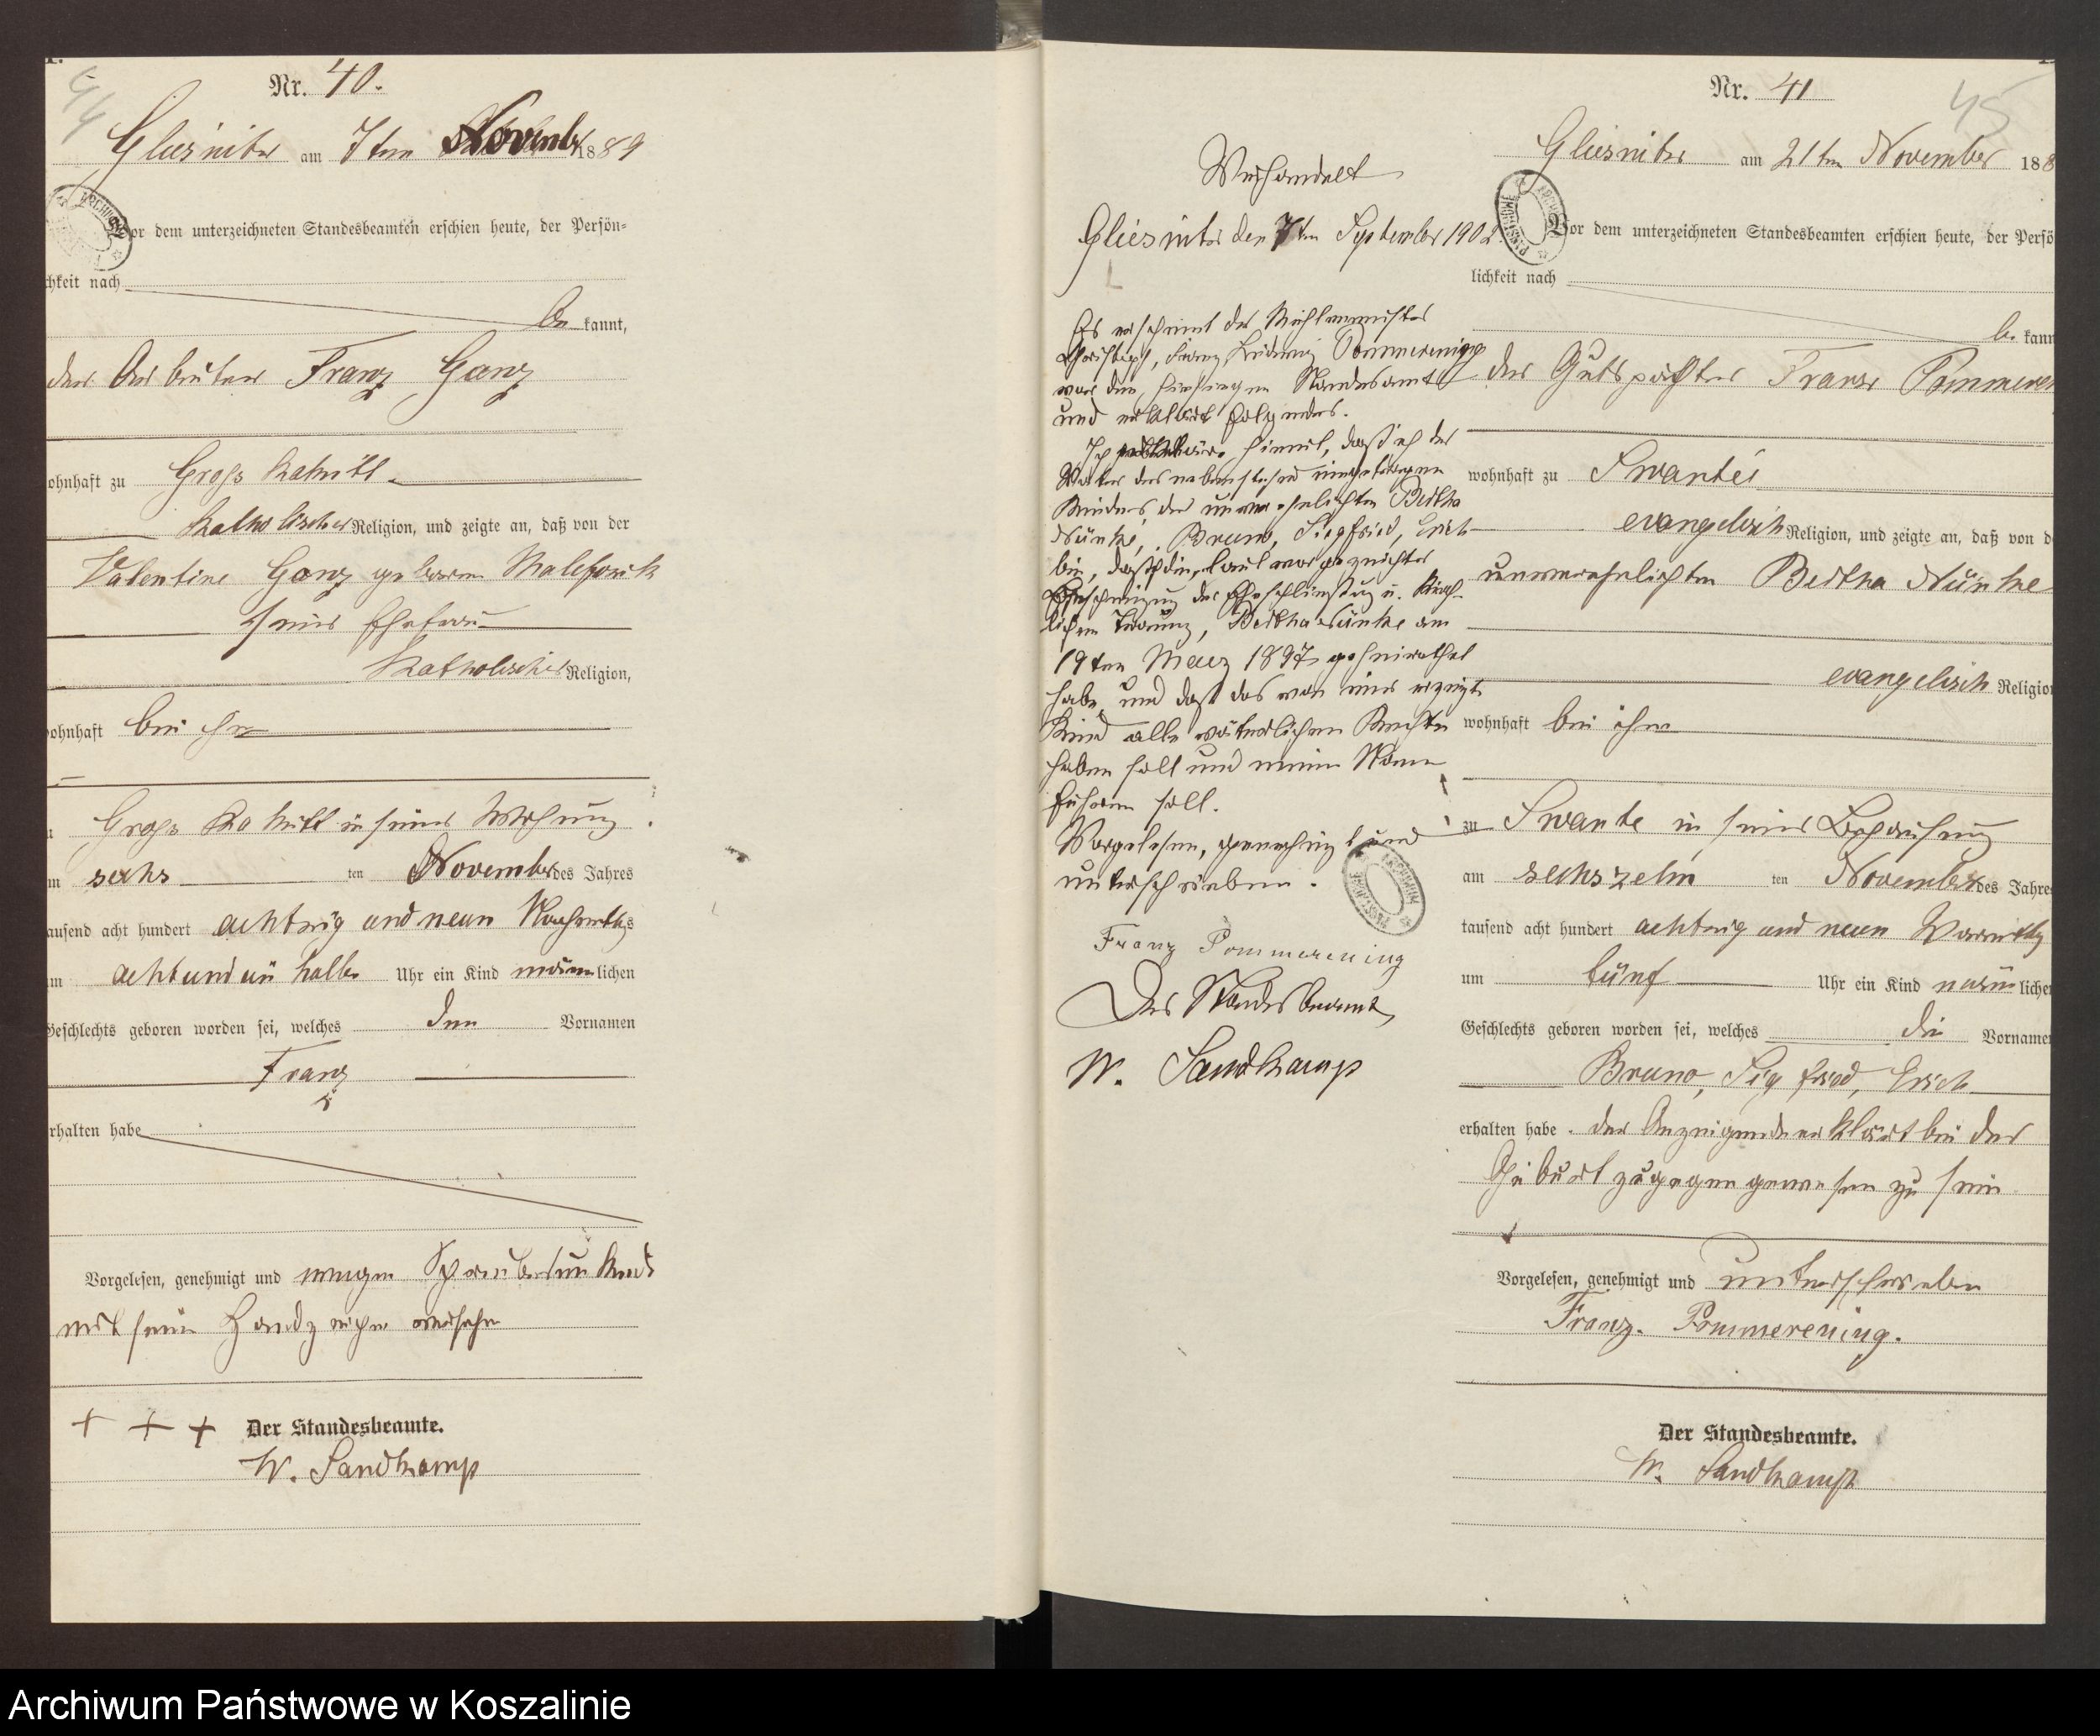 Nr. 40.
Gliesnitz am 7ten November 1889
Vor dem unterzeichneten Standesbeamten erschien heute, der Persön-
chkeit nach
be kannt,
der Arbeiter Franz Ganz
ohnhaft zu Gross
katholischer Religion, und zeigte an, daß von der
Valentine Ganz geboren
seiner Ehefrau
katholischer Religion,
ohnhaft bei ihm
Gross in seiner Wohnung
m sechs ten November des Jahres
ausend acht hundert achtzig und neun Nachmittags
m acht und ein halb Uhr ein Kind männlichen
Geschlechts geboren worden sei, welches den Vornamen
Franz
rhalten habe
Vorgelesen, genehmigt und wegen Schreibensunkunde
mit seinem Handzeichen versehen
+ + + Der Standesbeamte.
W. Sandkamp
Verhandelt
Gliesnitz den 7ten September 1902
Es erscheint der Mühlenmeister
Christoph, Franz, Ludwig Pommerening
vor dem hiesigen Standesamt
und erklärt folgendes.
Ich erkläre hiermit, daß ich der
Vater des nebenstehend eingetragenen
Kindes der unverehelichten Bertha
Nünke, Bruno, Siegfried, Erich
bin, daß ich die, laut vorgezeichter
Bescheinigung der Eheschließung u. kirch-
lichen Trauung, Bertha Nünke am
19ten Merz 1897 geheirathet
habe, und daß das von mir erzeugte
Kind alle väterlichen Rechte
haben soll und meinen Namen
führen soll.
Vorgelesen, genehmigt und
unterschrieben.
Franz Pommerening
Der Standesbeamte
W. Sandkamp
Nr. 41
45
Gliesnitz am 21ten November 188
Vor dem unterzeichneten Standesbeamten erschien heute, der Persö
lichkeit nach
be kann
der Gutspächter Franz Pommere
wohnhaft zu Swante
evangelisch Religion, und zeigte an, daß von d
unverehelichten Bertha Nünke
evangelisch Religion
wohnhaft bei ihm
zu Swante in seiner Behausung
am sechszehn ten November des Jahre
tausend acht hundert achtzig und neun Vormittag
um fünf Uhr ein Kind männ liche
Geschlechts geboren worden sei, welches die Vorname
Bruno, Sigfried, Erich
erhalten habe. der Anzeigende erklärt bei der
Geburt zugegen gewesen zu sein
Vorgelesen, genehmigt und unterschrieben
Franz. Pommerening.
Der Standesbeamte.
W. Sandkamp
Archiwum Państwowe w Koszalinie